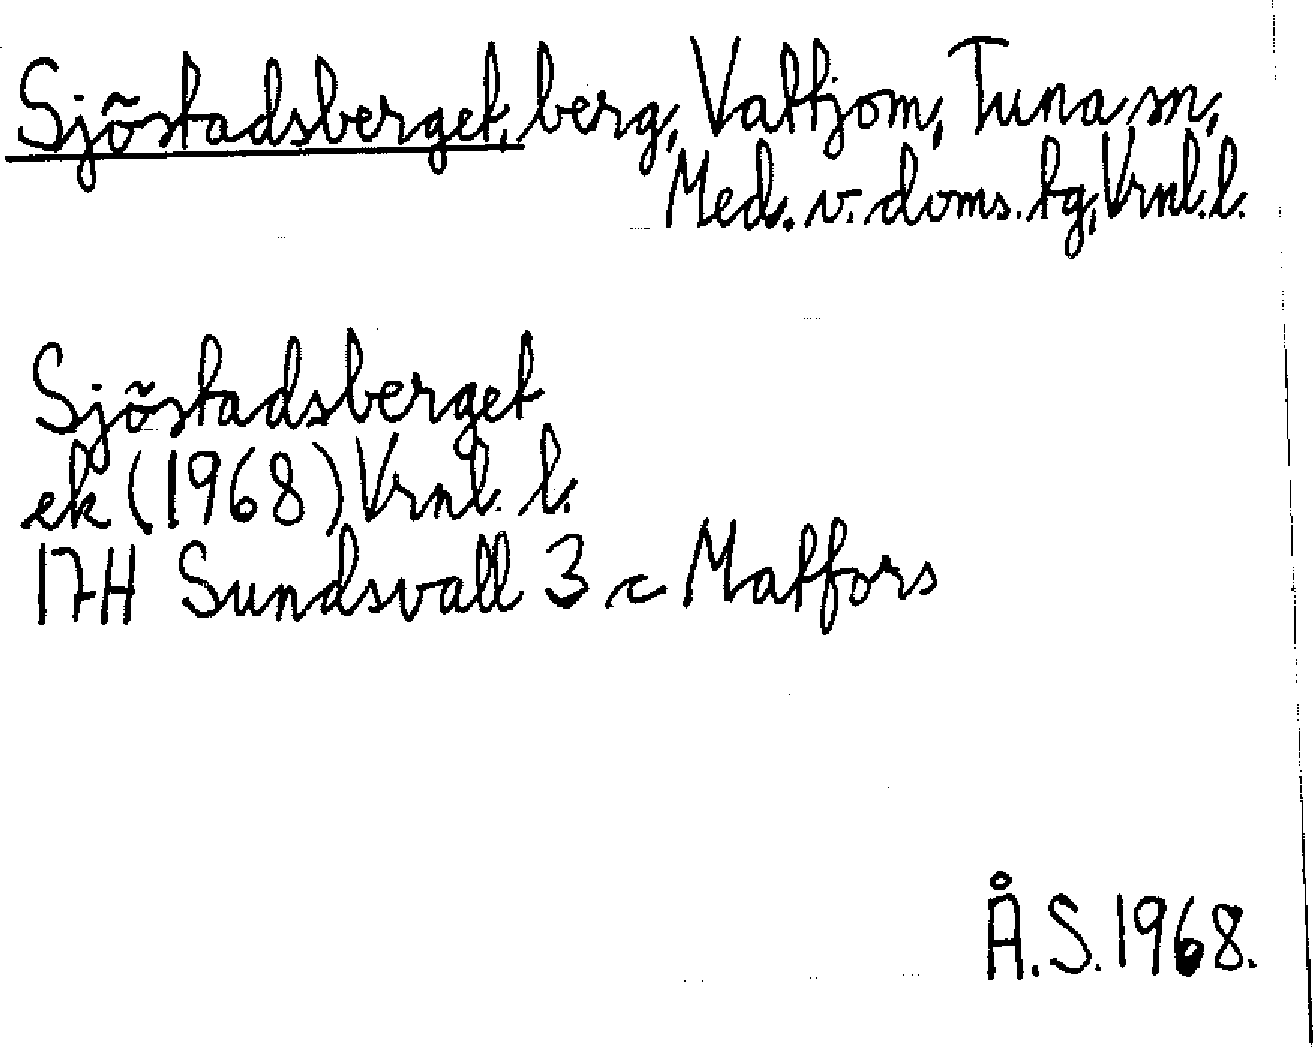 Sjöstadsberget, berg, Vattjom, Tuna sn,
Med. v. doms. tg, Vrnl. l.
Sjöstadsberget
ek (1968) Vrnl. l.
17H Sundsvall 3 c Matfors
Å.S. 1968.